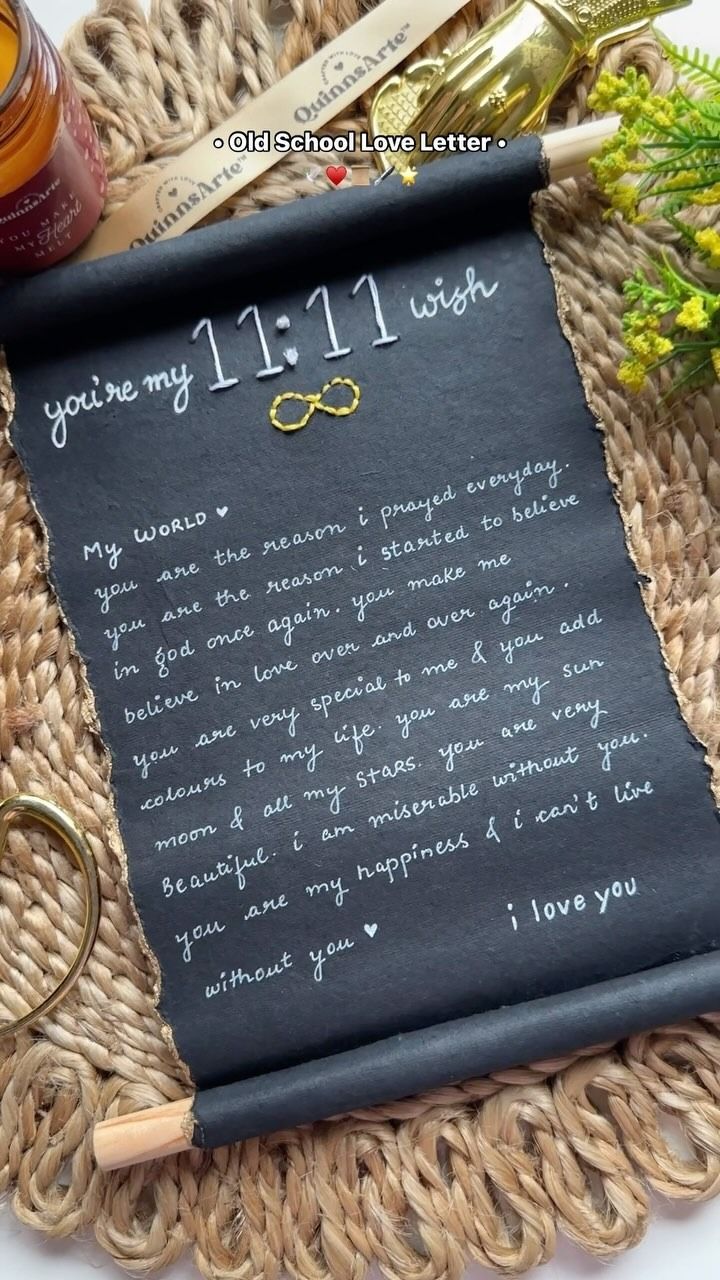 QuinnsArte™
CRAFTED WITH LOVE
• Old School Love Letter •
CRAFTED WITH LOVE
QuinnsArte™
QuinnsArte
YOU MAKE
MY Heart
MELT
you're my 11:11 wish
My WORLD ♥
you are the reason i prayed everyday.
you are the reason i started to believe
in god once again. you make me
believe in love over and over again.
you are very special to me & you add
colours to my life. you are my sun
moon & all my stars. you are very
Beautiful. i am miserable without you.
you are my happiness & i can't live
without you ♥
i love you